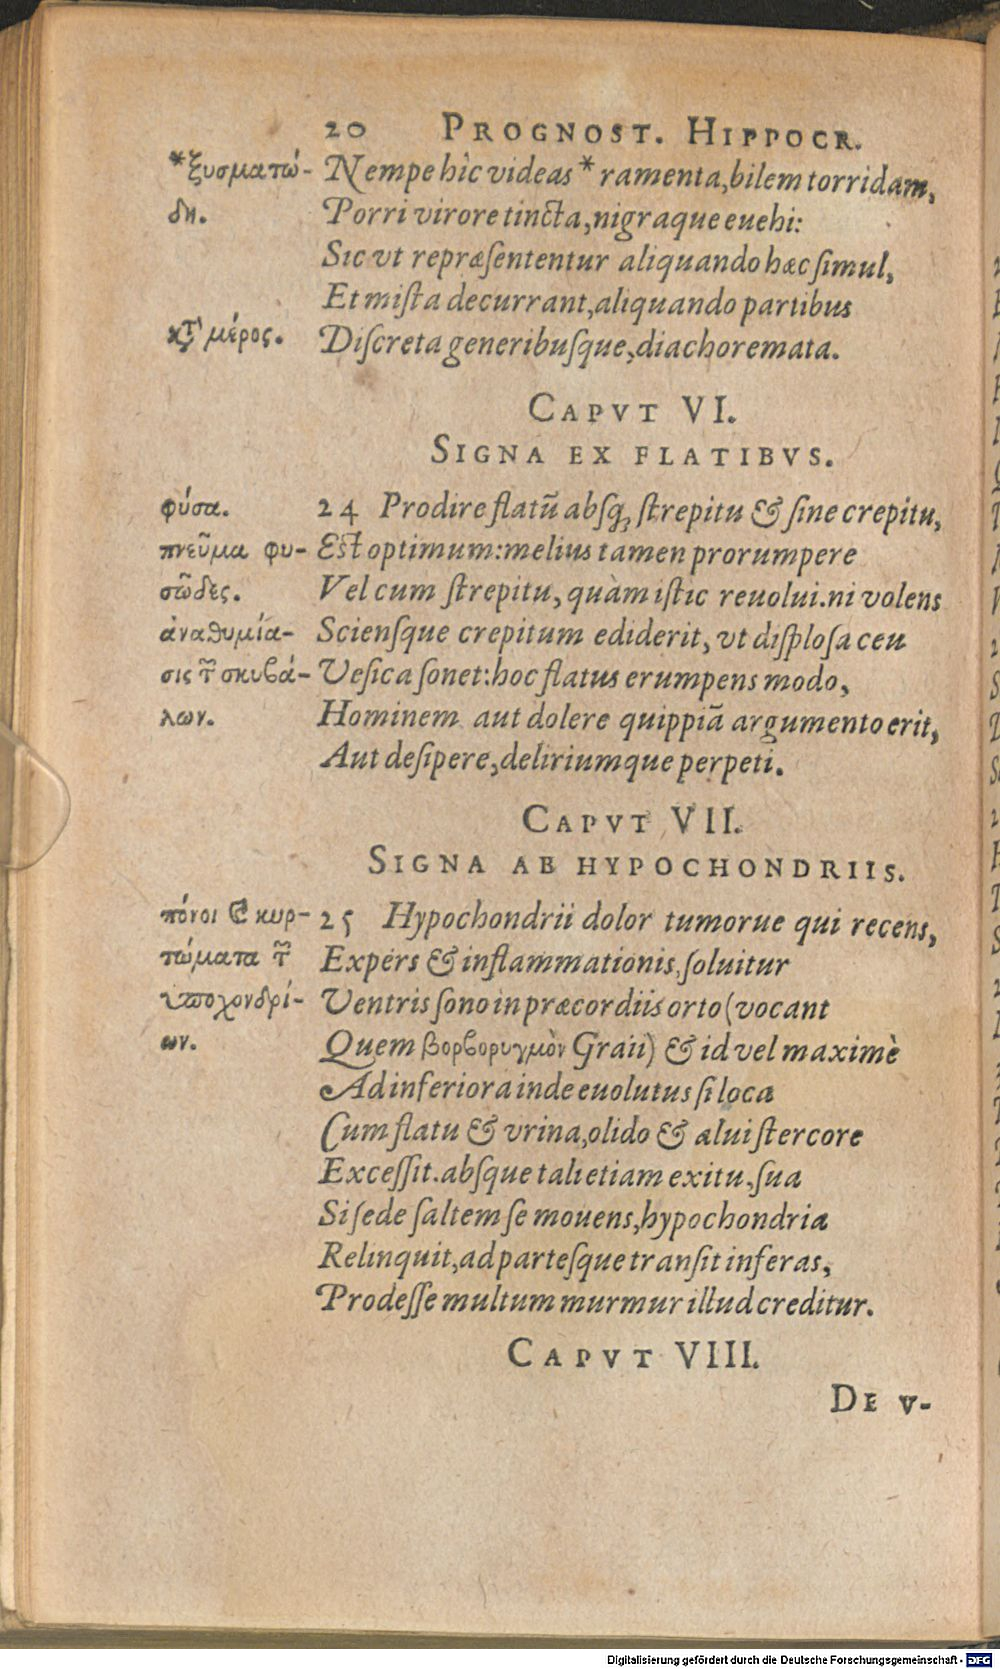 20 PROGNOST. HIPPOCR.
*ξυσματώ- Nempe hìc videas * ramenta, bilem torridam,
δη. Porri virore tincta, nigraque euehi:
Sic vt repræſententur aliquando hæc ſimul,
Et miſta decurrant, aliquando partibus
κτ' μέρος. Diſcreta generibuſque, diachoremata.
CAPVT VI.
SIGNA EX FLATIBVS.
φύσα. 24 Prodire flatũ abſq; ſtrepitu & ſine crepitu,
πνεῦμα φυ- Eſt optimum: melius tamen prorumpere
σῶδες. Vel cum ſtrepitu, quàm iſtic reuolui. ni volens
ἀναθυμία- Scienſque crepitum ediderit, vt diſploſa ceu
σις τ῀ σκυβά- Veſica ſonet: hoc flatus erumpens modo,
λων. Hominem aut dolere quippiã argumento erit,
Aut deſipere, deliriumque perpeti.
CAPVT VII.
SIGNA AB HYPOCHONDRIIS.
πόνοι ϗ κυρ- 25 Hypochondrii dolor tumorue qui recens,
τώματα τ῀ Expers & inflammationis, ſoluitur
ὑποχονδρί- Ventris ſono in præcordiis orto (vocant
ων. Quem βορβορυγμὸν Graii) & id vel maximè
Ad inferiora inde euolutus ſi loca
Cum flatu & vrina, olido & alui ſtercore
Exceſſit. abſque tali etiam exitu, ſua
Si ſede ſaltem ſe mouens, hypochondria
Relinquit, ad parteſque tranſit inferas,
Prodeſſe multum murmur illud creditur.
CAPVT VIII.
DE V-
Digitalisierung gefördert durch die Deutsche Forschungsgemeinschaft - DFG